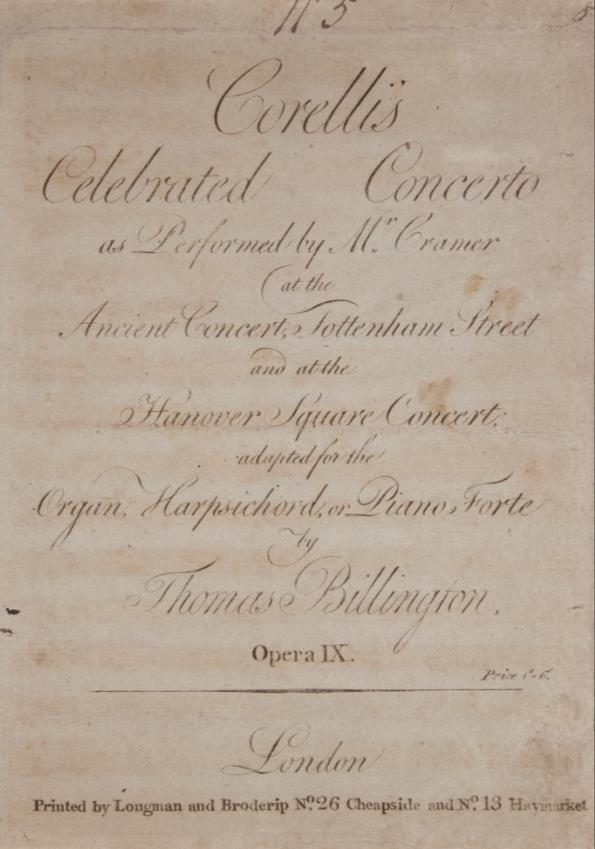 No 5
Corelli's
Celebrated Concerto
as Performed by Mr. Cramer
at the
Ancient Concert, Tottenham Street
and at the
Hanover Square Concert;
adapted for the
Organ, Harpsichord, or Piano Forte
by
Thomas Billington.
Opera IX.
Price 1s-6.
London
Printed by Longman and Broderip No. 26 Cheapside and No. 13 Haymarket